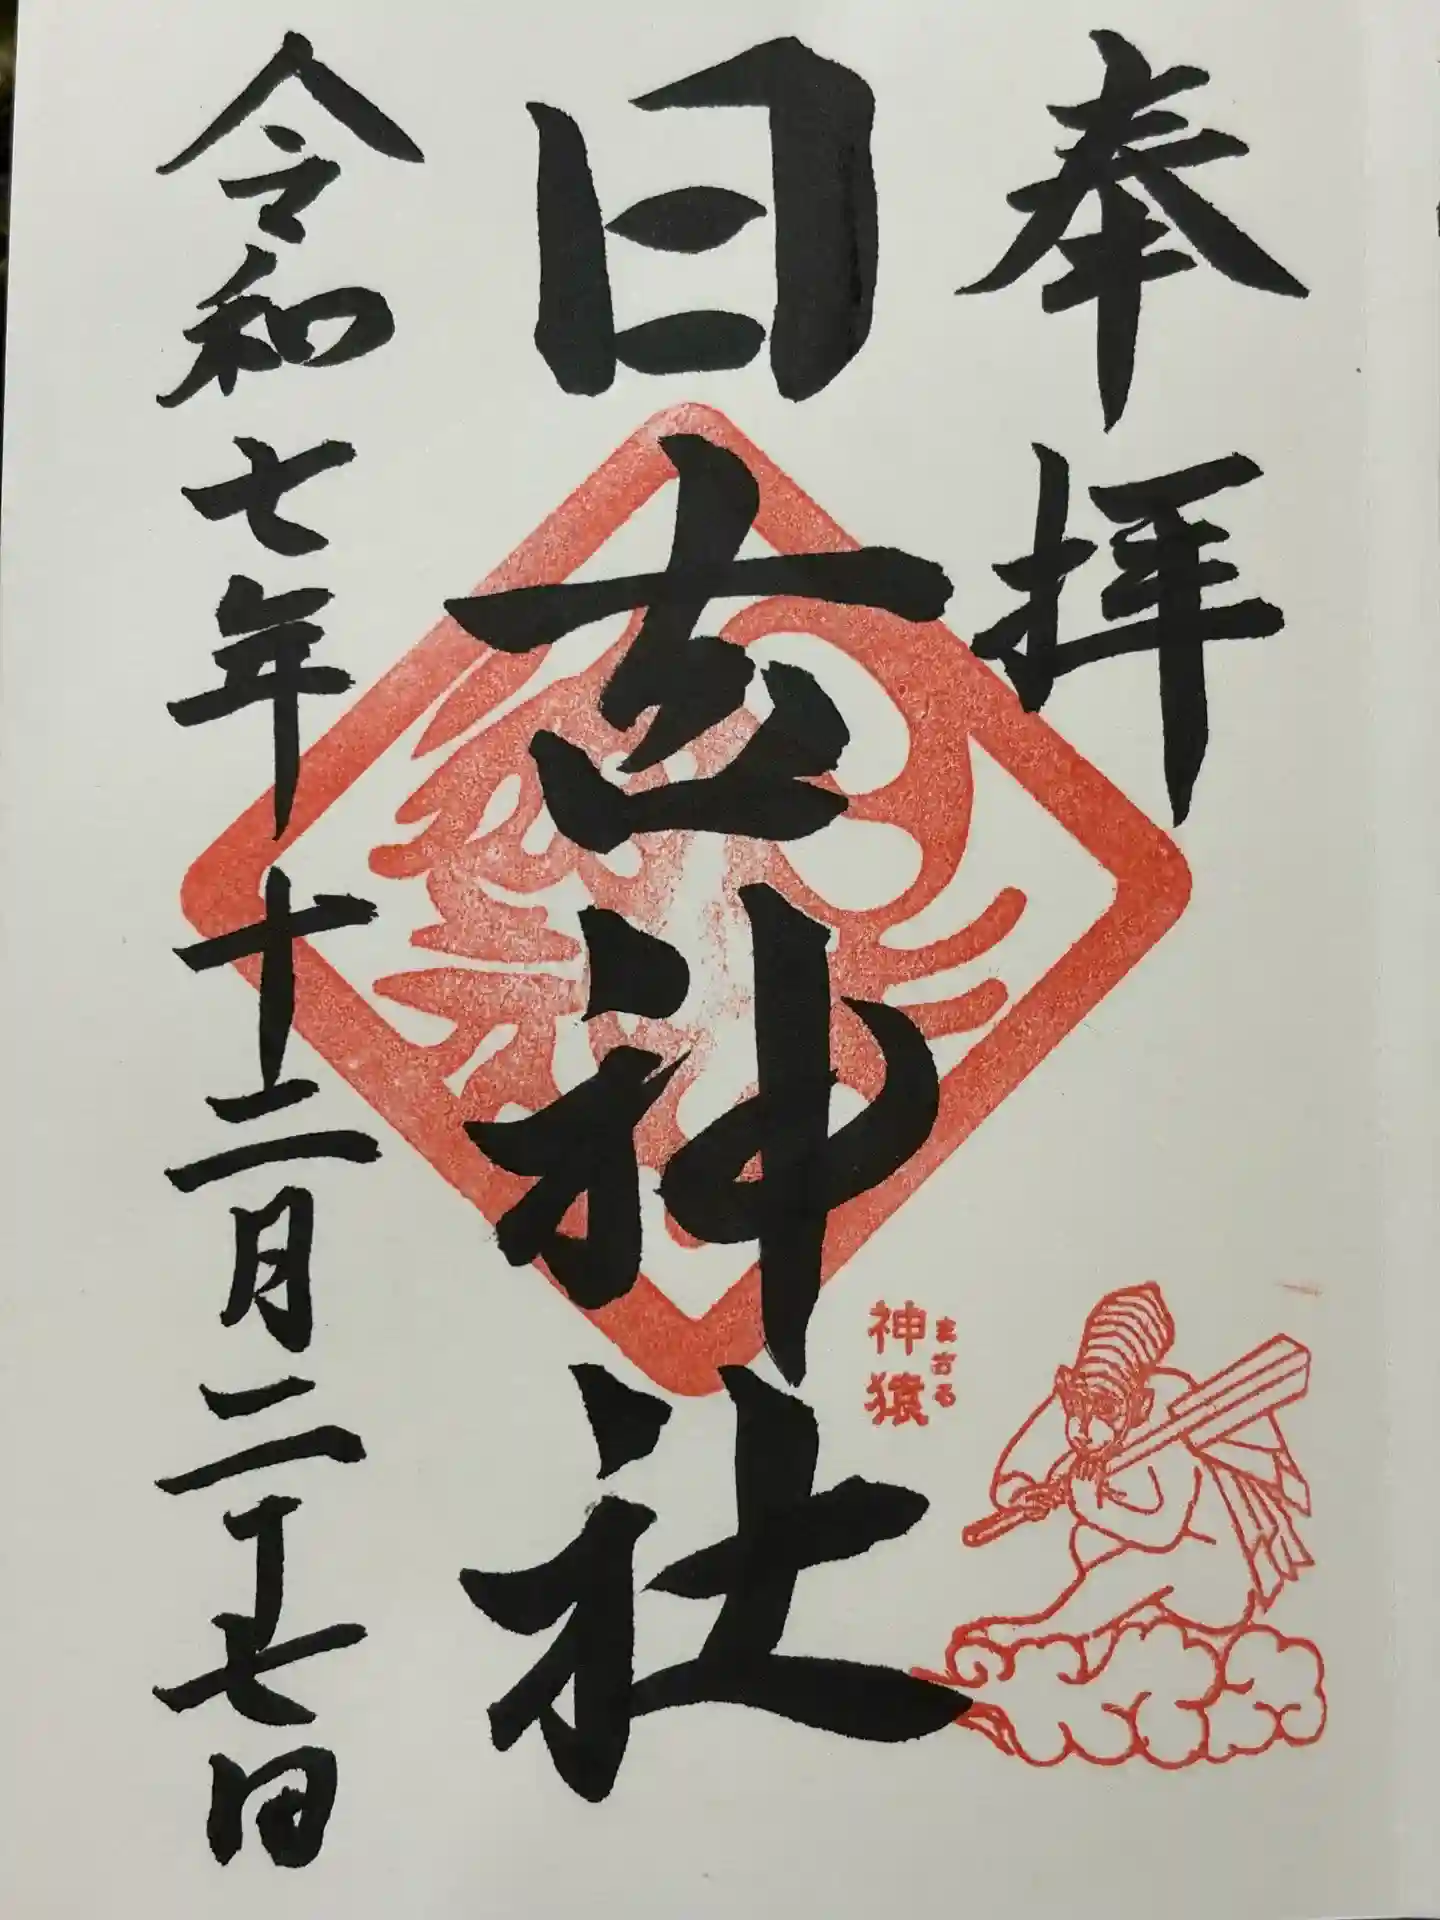 奉拝
日吉神社
まさる
神猿
令和七年十二月二十七日